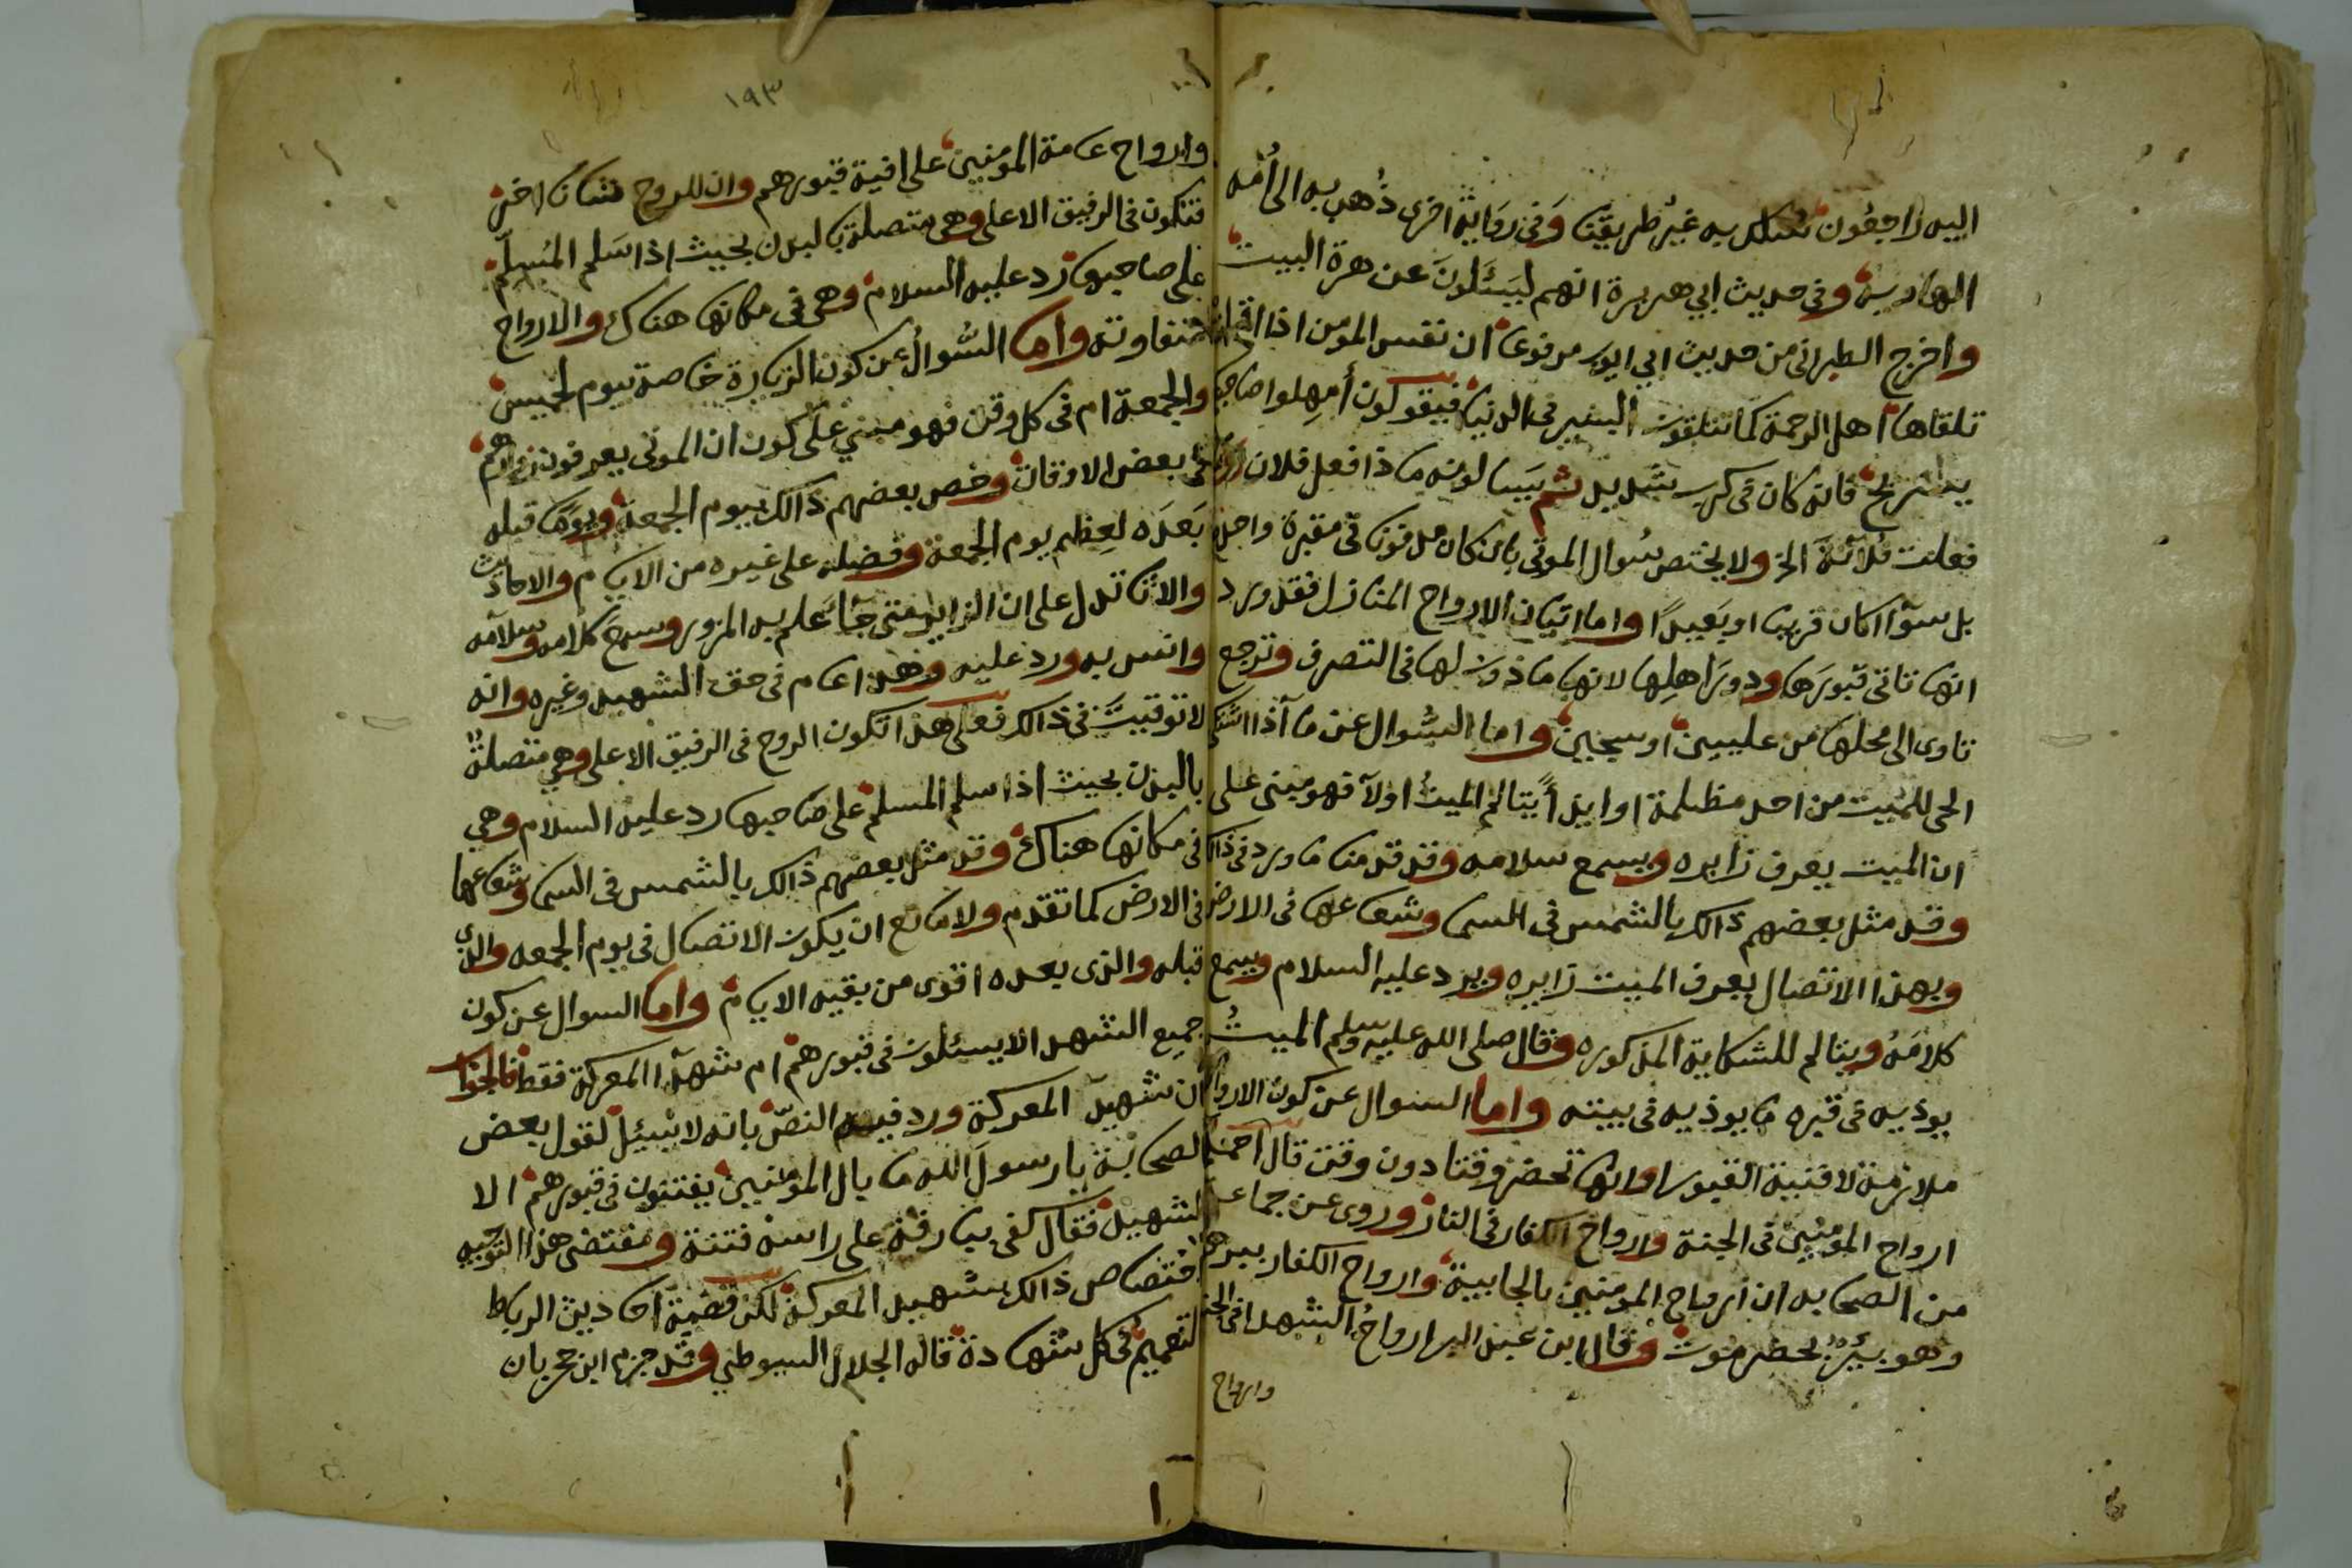 اليه راجعون سُلك به غير طريقنا وفى رواية اخرى ذُهب به الى أمه
الهاوية وفى حديث ابي هريرة انهم ليسَئلونَ عن هرة البيت
واخرج الطبرانى من حديث ابي ايوب مرفوعا ان نفس المومن اذا
تلقاها اهل الرحمة كما تتلقون البشير فى الدنيا فيقولون أمهلوا صاحبكم
يستريح فانه كان فى كرب شديد ثم يَسالونه ماذا فعل فلان
فعلت فلانة الخ ولا يختص سُوال الموتى بمن كان مدفونا فى مقبرة واحدة
بل سوآا كان قريبا او بَعيدًا واما اتيان الارواح المنازل فقد ورد
انها تاتى قبورَها ودورَ اهلِها لانها ماذون لها فى التصرف وترجع
تاوى الى محلها من عليين او سجين واما السُوال عن ما اذا اشتكى
الحى للميت من احد مظلمة او ايذآً يتالم الميتُ اولا فهو مبنى على
ان الميت يعرف زايره ويسمع سلامه وقد قدمنا ما ورد فى ذالك
وقد مثل بعضهم ذالك بالشمس فى السما وشعاعها فى الارض
وبهذا الاتصال يعرف الميت زايره ويرد عليه السلام ويسمع
كلامَهُ ويتالم للشكاية المذكوره وقال صلى الله عليه وسلم الميتُ
يوذيه فى قبره ما يوذيه فى بيته واما السوال عن كون الارواح
ملازمة لافنية القبور او انها تحضر وقتا دون وقت قال احمد
ارواح المؤمنين فى الجنة وارواح الكفار فى النار وروى عن جماعة
من الصحابه ان ارواح المومنين بالجابية وارواح الكفار ببرهوت
وهو بيْرٌ بحضرموت وقال ابن عبد البر ارواحُ الشهدا فى الجنة
وارواح
١٩٣
وارواح عامة المؤمنين على افنية قبورهم وان للروح شانا اخر
فتكون فى الرفيق الاعلى وهى متصلة بالبدن بحيث اذا سَلم المُسلِّم
على صاحبها رد عليه السلام وهى فى مكانها هناك والارواح
متفاوتة واما السُّوالُ عن كون الزيارة خاصة بيوم الخميس
والجمعة ام فى كل وقت فهو مبني على كون ان الموتى يعرفون زوارهم
فى بعض الاوقات وخص بعضهم ذالك بيوم الجمعة ويومًا قبله
بَعدَه لعِظم يوم الجمعة وفضله على غيره من الايام والاحاديث
والاثار تدل على ان الزاير متى جَاءَ علم به المزور وسمعَ كلامه وسلامه
وانس به ورد عليه وهذا عام فى حق الشهيد وغيره وانه
لا توقيتَ فى ذالك فعلى هذا تكون الروح فى الرفيق الاعلى وهي متصلةٌ
بالبدن بحيث اذا سلم المسلم على صَاحبها رد عليه السلام وهي
فى مكانها هناك وقد مثل بعضهم ذالك بالشمس فى السما وشعاعها
فى الارض كما تقدم ولا مانع ان يكون الاتصال فى يوم الجمعه والذى
قبله والذى بعده اقوى من بقيه الايام واما السوال عن كون
جميع الشهدا لايسئلون فى قبورهم ام شهدآا المعركة فقط فالجواب
ان شهيدَ المعركة ورد فيه النصّ بانه لا يُسئل لقول بعض
الصحابة يا رسولَ الله ما بال المؤمنين يفتنون فى قبورهم الا
الشهيد فقال كفى ببارقة على راسه فتنة ومقتضى هذا التوجيه
اختصاص ذالك بشهيد المعركة لكن قضية احاديث الرباط
التعميم فى كل شهادة قاله الجلال السيوطي وقد جزم ابن حجر بان